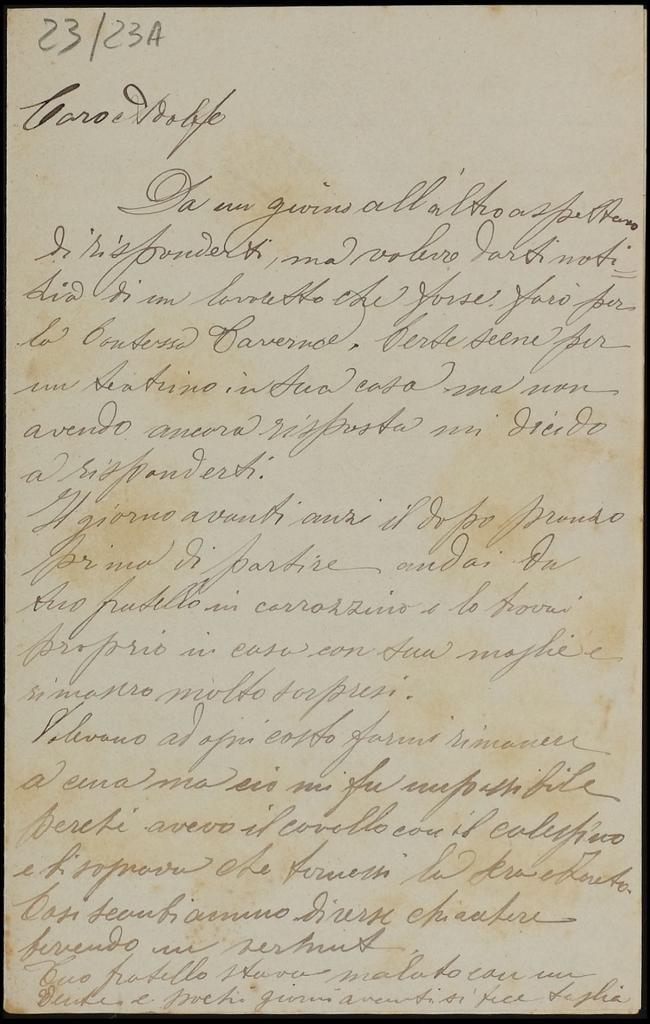 23/23A
Caro Adolfo
Da un giorno all'altro aspettavo
di risponderti, ma volevo darti noti=
zia di un lavoretto che forse farò per
la Contessa Taverna. Certe scene per
un teatrino in sua casa ma non
avendo ancora risposta mi dicido
a risponderti.
Il giorno avanti anzi il dopo pranzo
prima di partire andai da
tuo fratello in carrozzino e lo trovai
proprio in casa con sua moglie e
rimasero molto sorpresi.
Volevano ad ogni costo farmi rimanere
a cena ma ciò mi fu impossibile
perché avevo il cavallo con il calessino
e bisognava che tornassi la sera
Così scambiammo diverse chiacchere
bevendo un vermut.
Tuo fratello stava malato con un
dente e pochi giorni avanti si fece